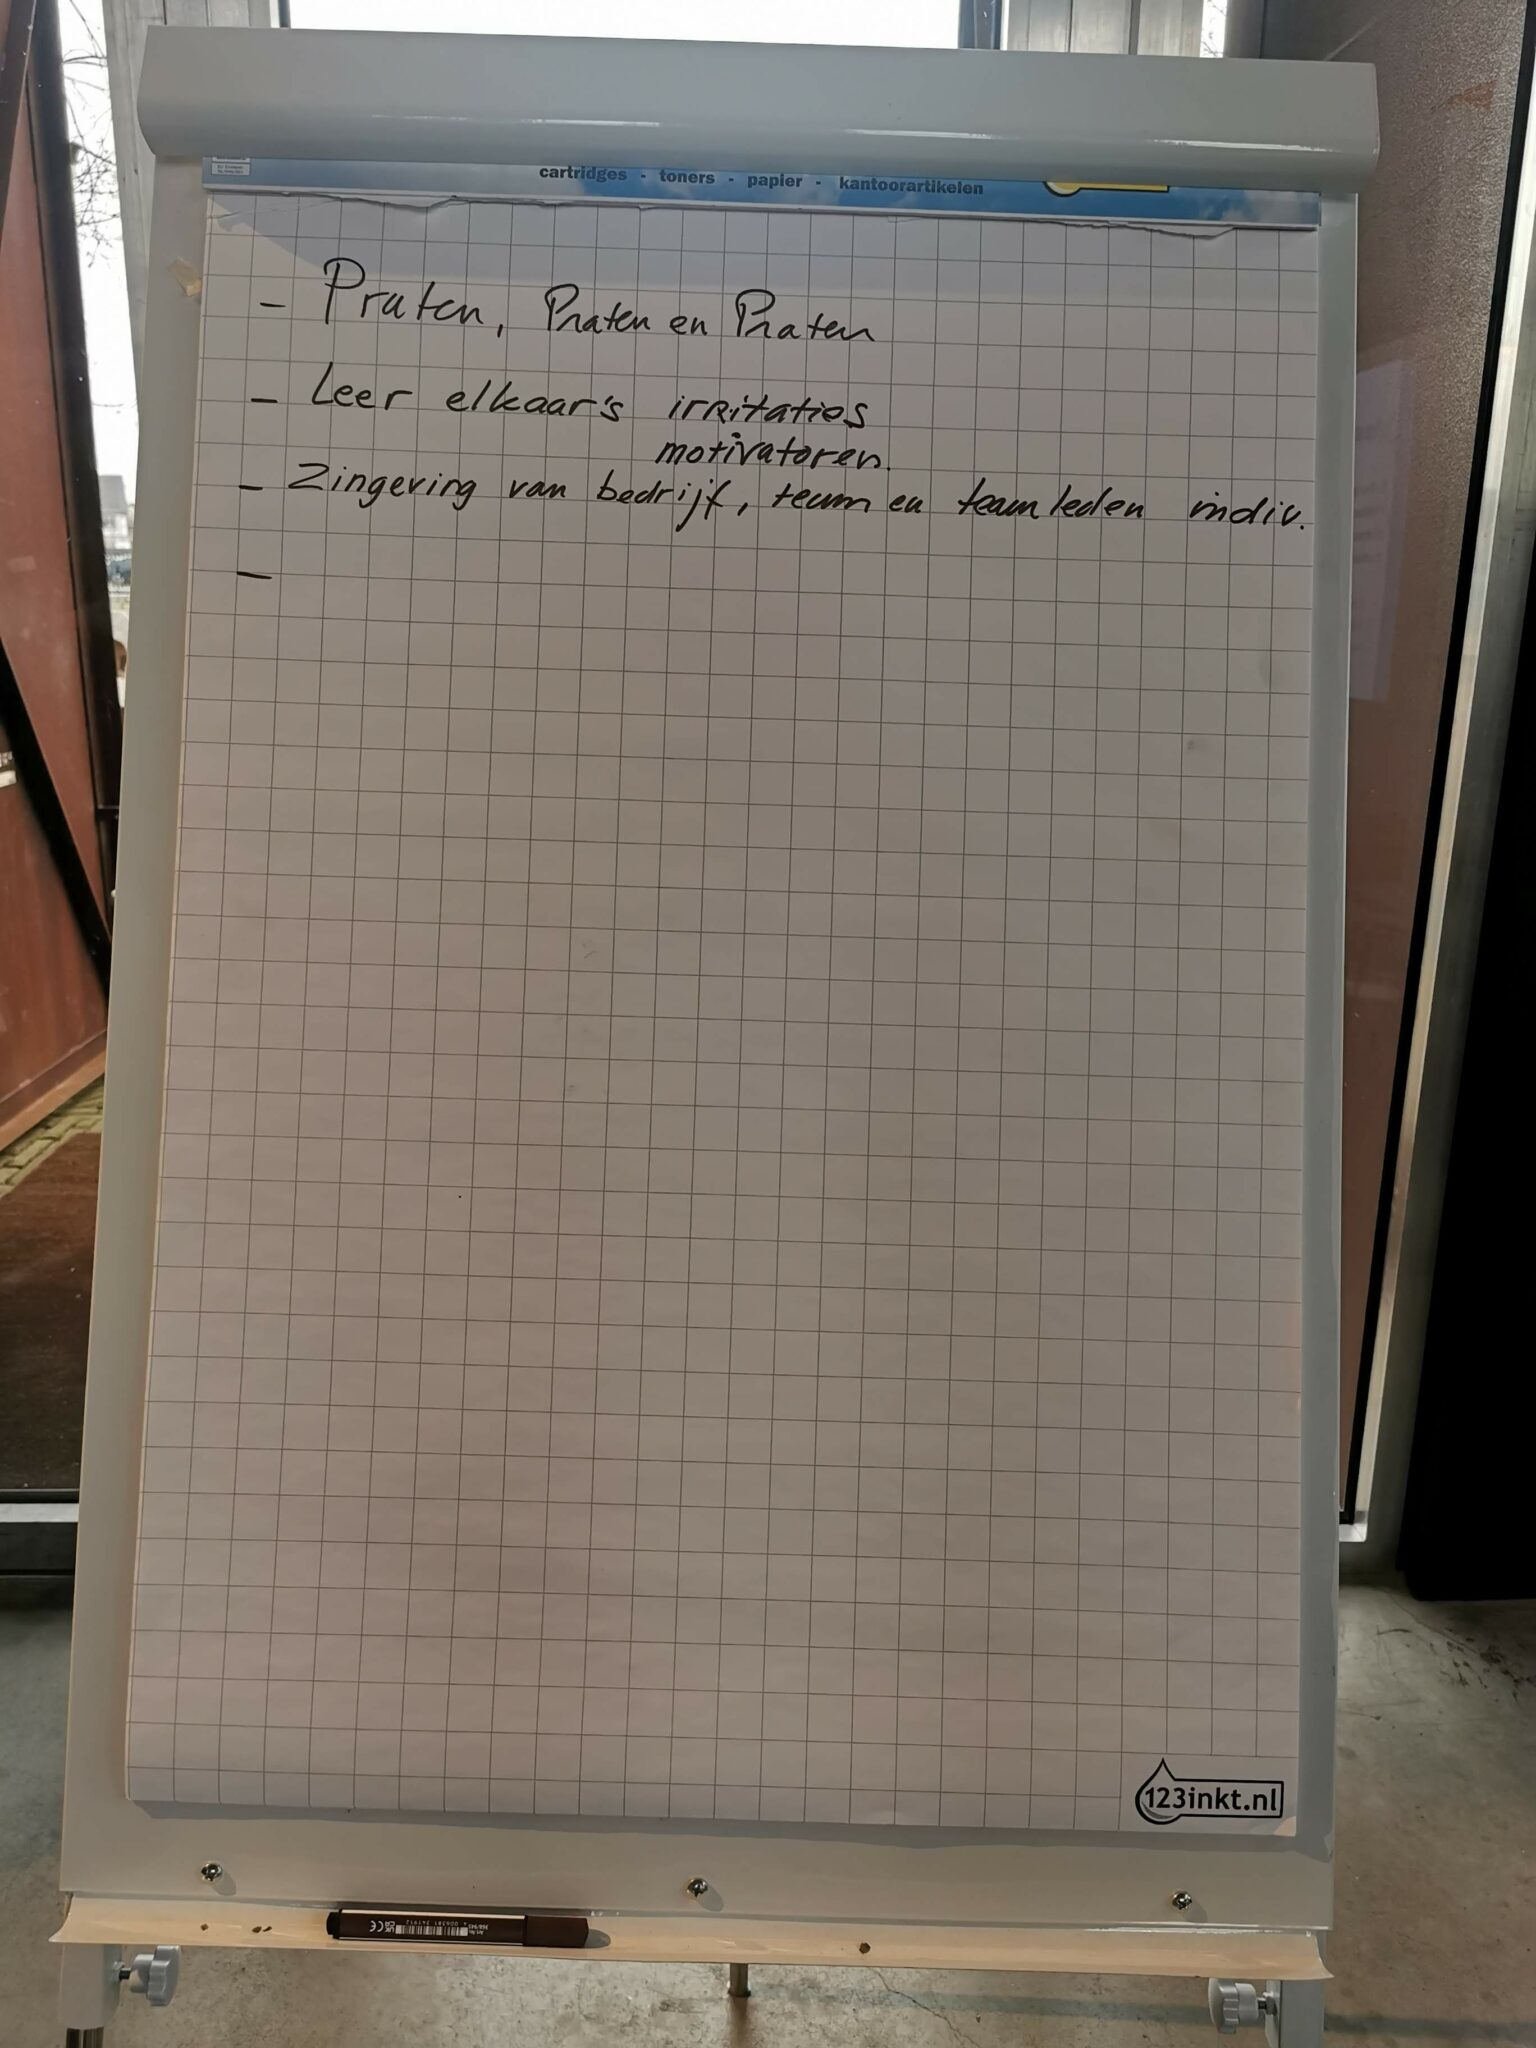 cartridges - toners - papier - kantoorartikelen
- Praten, Praten en Praten
- Leer elkaar's irritaties
motivatoren.
- Zingeving van bedrijf, team en teamleden indiv.
-
123inkt.nl